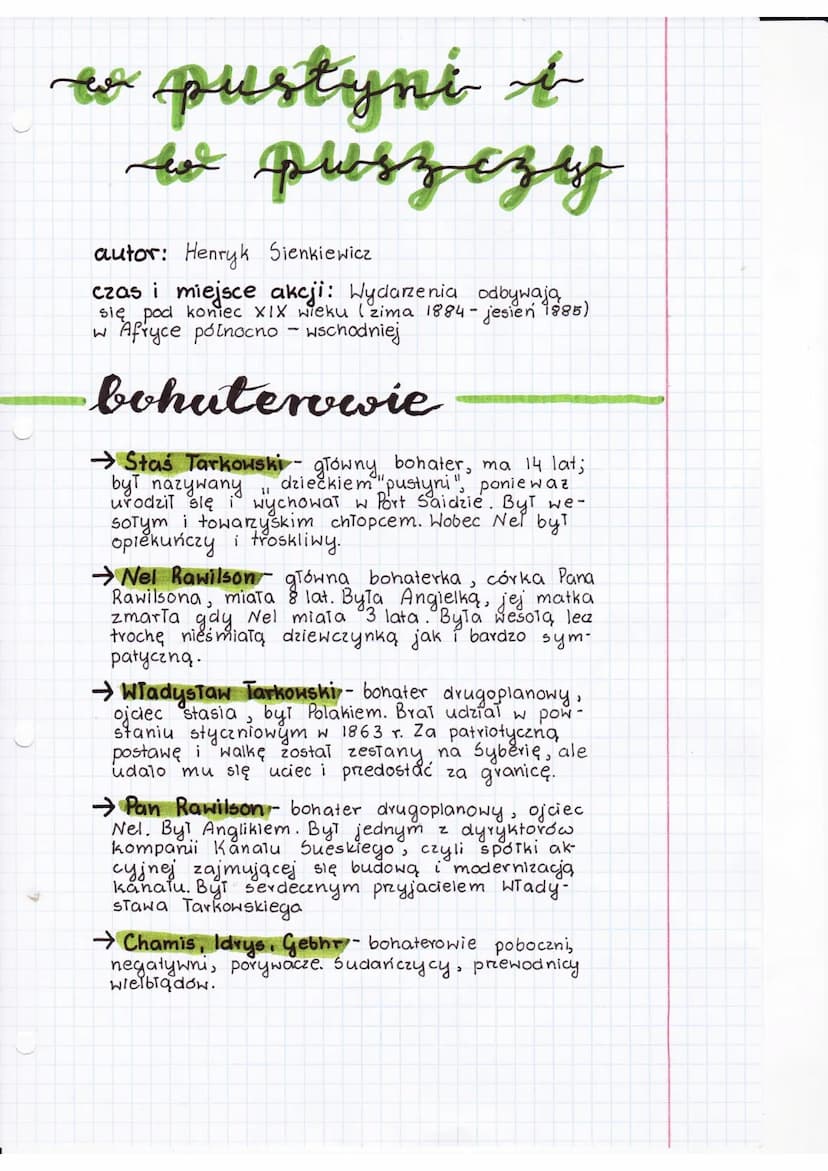 w pustyni i
w puszczy
autor: Henryk Sienkiewicz
czas i miejsce akcji: Wydarzenia odbywają
się pod koniec XIX wieku (zima 1884 - jesień 1885)
w Afryce północno - wschodniej
bohaterowie
→ Staś Tarkowski - główny bohater, ma 14 lat;
był nazywany „dzieckiem "pustyni", ponieważ
urodził się i wychował w Port Saidzie. Był we-
sołym i towarzyskim chłopcem. Wobec Nel był
opiekuńczy i troskliwy.
→ Nel Rawilson - główna bohaterka, córka Pana
Rawilsona, miała 8 lat. Była Angielką, jej matka
zmarła gdy Nel miała 3 lata. Była wesołą lecz
trochę nieśmiałą dziewczynką jak i bardzo sym-
patyczną.
→ Władysław Tarkowski - bohater drugoplanowy,
ojciec stasia, był Polakiem. Brał udział w pow-
staniu styczniowym w 1863 r. Za patriotyczną
postawę i walkę został zesłany na Syberię, ale
udało mu się uciec i przedostać za granicę.
→ Pan Rawilson - bohater drugoplanowy, ojciec
Nel. Był Anglikiem. Był jednym z dyryktorów
kompanii Kanału Sueskiego, czyli spółki ak-
cyjnej zajmującej się budową i modernizacją
kanału. Był serdecznym przyjacielem Włady-
sława Tarkowskiego
→ Chamis, Idrys, Gebhr - bohaterowie poboczni,
negatywni, porywacze. Sudańczycy, przewodnicy
wielbłądów.